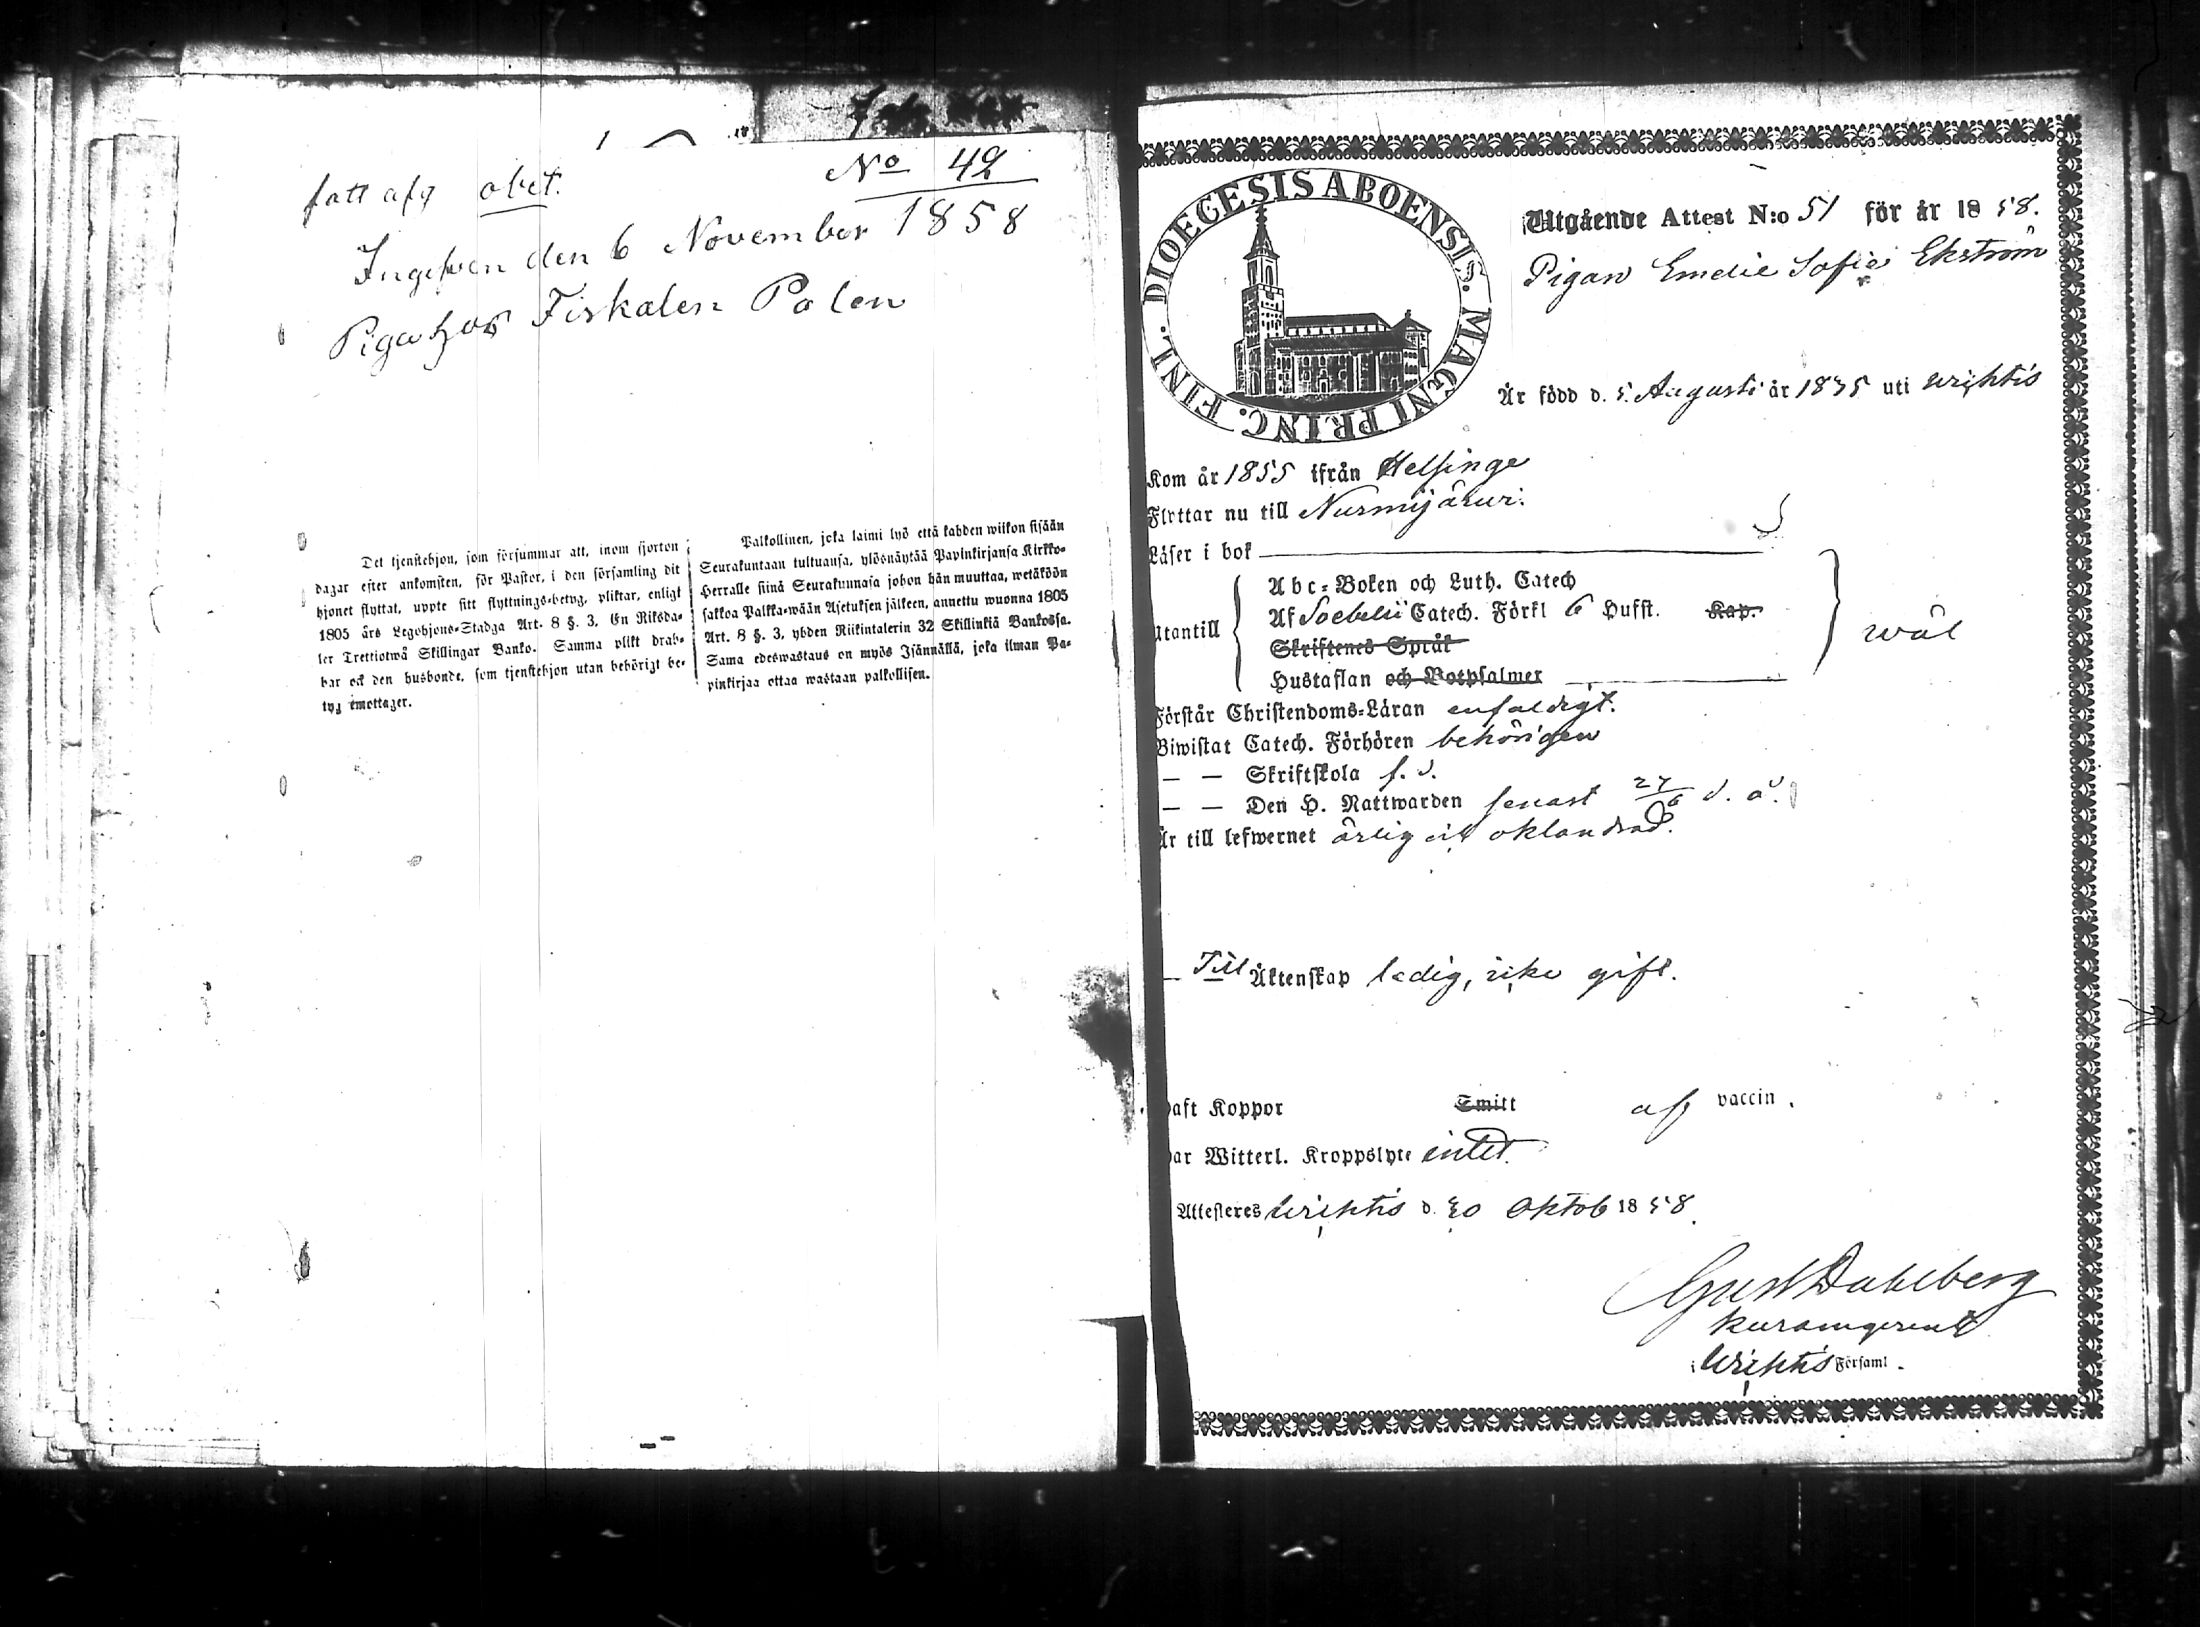 No 42
fatt afg obet.
Ingifven den 6 November 1858
Piga hos Fiskalen Palen
Det tjenstehjon, som försummar att, inom fjorton
dagar efter ankomsten, för Pastor, i den församling dit
hjonet flyttat, uppte sitt flyttnings-betyg, pliktar, enligt
1805 års Legohjons-Stadga Art. 8 §. 3. En Riksda-
ler Trettiotwå Skillingar Banko. Samma plikt drab-
bar ock den husbonde, som tjenstehjon utan behörigt be-
tyg emottager.
Palkollinen, joka laimi lyö että kahden wiikon sisään
Seurakuntaan tultuansa, ylösnäytää Papinkirjansa Kirkko-
Herralle siinä Seurakunnasa johon hän muuttaa, wetäköön
sakkoa Palkka-wään Asetuksen jälkeen, annettu wuonna 1805
Art. 8 §. 3, yhden Riikintalerin 32 Skillinkiä Bankossa.
Sama edeswastaus on myös Isännällä, joka ilman Pa-
pinkirjaa ottaa wastaan palkollisen.
DIOECESIS ABOENSIS. MAGNI PRINC. FINL.
Utgående Attest N:o 51 för år 1858.
Pigan Emelie Sofia Ekström
Är född d. 5. Augusti år 1835 uti Wichtis
Kom år 1855 ifrån Helsinge
Flyttar nu till Nurmijärwi.
Läser i bok
Abc-Boken och Luth. Catech
Utantill Af Soebelii Catech. Förkl 6 Hufst. Kap.
Skriftenes Språk
Hustaflan och Botpsalmer
wäl
Förstår Christendoms-Läran enfaldigt.
Biwistat Catech. Förhören behörigen
— — Skriftskola f. d.
— — Den H. Nattwarden senast 27/6 d. å.
Är till lefwernet ärlig och oklandrad.
— Till Äktenskap ledig, icke gift.
Haft Koppor Smitt af vaccin.
Har Witterl. Kroppslyte intet.
Attesteres Wichtis d. 30 Oktob 1858.
Gust Dahlberg
kuramgerent
i Wichtis Församl.